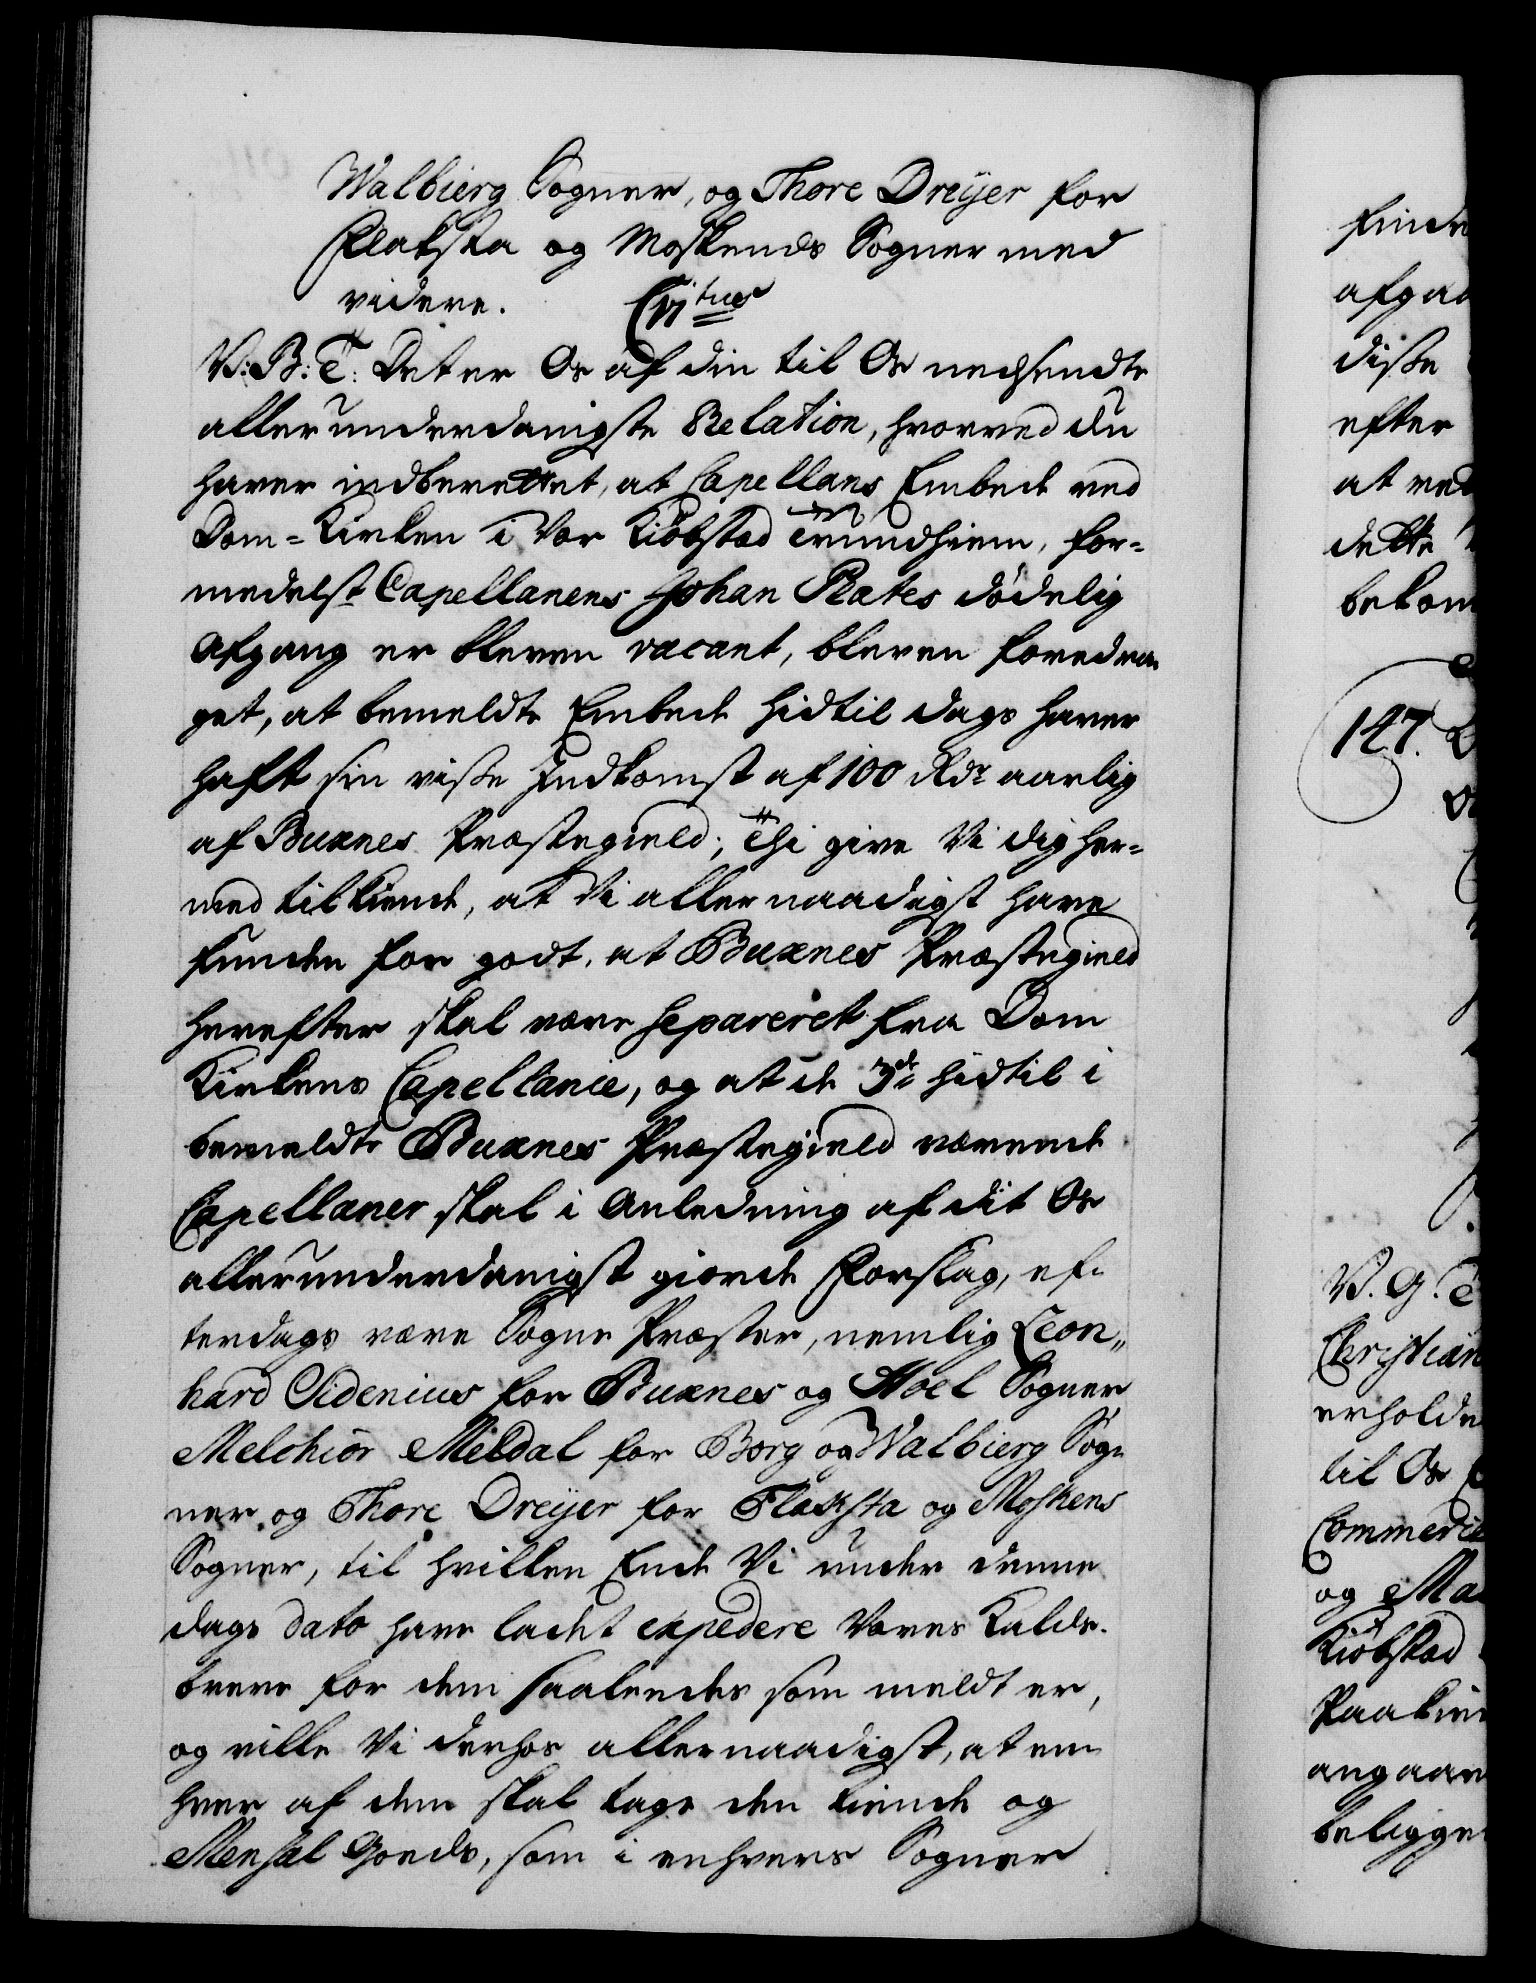 Walbierg Sogner, og Thore Dreÿer for
Flaksta og Moskends Sogner med
videre.
V: B: T: Det er Os af din til Os nedsendte
allerunderdanigste Relation, hvorved du
haver indberettet, at Capellans Embede ved
Dom-Kirken i Vor Kiöbstad Trundhiem, for-
medelst Capellanens Johan Plates dödelig
Afgang er bleven vacant, bleven foredra-
get, at bemeldte Embede hidtil dags haver
haft sin visse Indkomst af 100 Rdr aarlig
af Buxnes Præstegield; Thi give Vi dig her-
med tilkiende, at Vi allernaadigst have
funden for godt, at Buxnes Præstegield
herefter skal være separeret fra Dom
Kirkens Capellanie, og at de 3de hidtil i
bemeldte Buxnes Præstegield værende
Capellaner skal i Anledning af dit Os
allerunderdanigst giorde Forslag, ef-
terdags være Sogne Præster, nemlig Leon-
hard Sidenius for Buxnes og Hoel Sogner
Melchior Meldal for Borg og Walbierg Sog-
ner og Thore Dreÿer for Flaksta og Moskens
Sogner, til hvilken Ende Vi under denne
dags dato have ladet expedere Vores Kalds-
breve for dem saaledes som meldt er,
og ville Vi derhos allernaadigst, at en-
hver af dem skal tage den tiende og
Mensal Goeds, som i enhvers Sogner
finde
afgaa
disse
efter
at ved
dette
bekom
147.
V. G. T
Christian
erholde
til Os
Commerce
og Ma
Kiöbstad
Paakien
angaaen
beligge